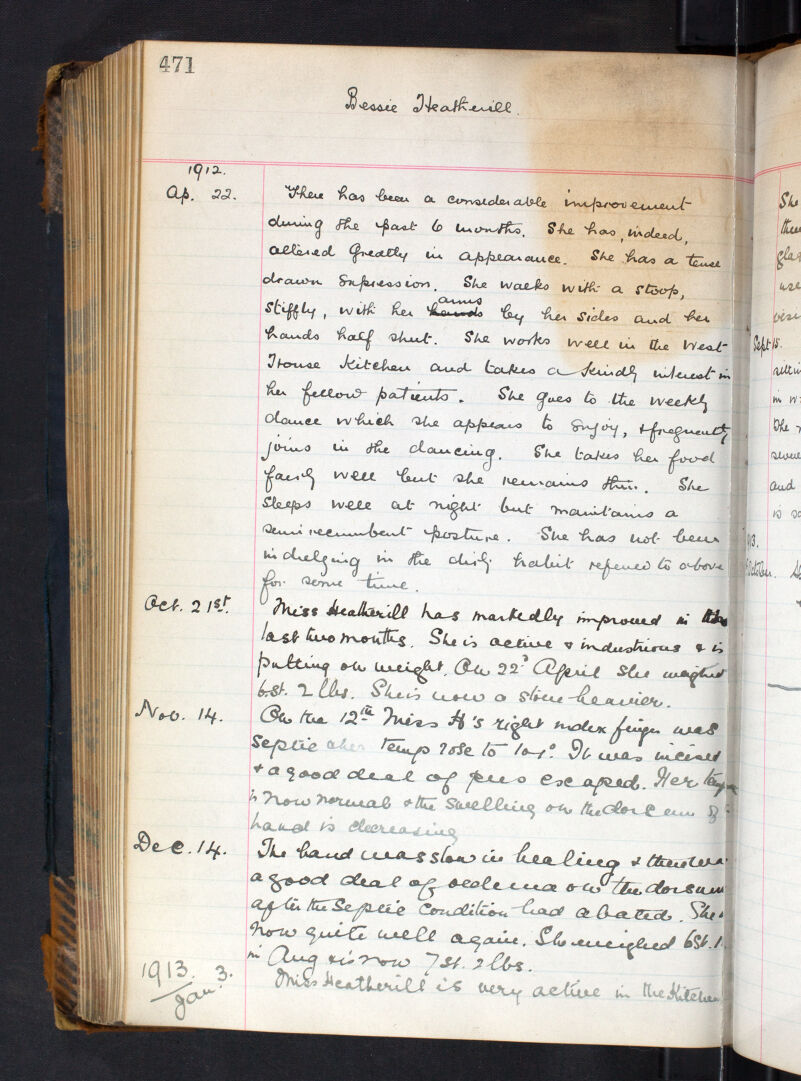 471
Bessie Heatherill.
1912.
Ap. 22. There has been a considerable improvement
during the past 6 months. She has, indeed,
altered greatly in appearance. She has a tense
drawn expression. She walks with a stoop,
stiffly, with her hands arms by her sides and her
hands half shut. She works well in the West
House Kitchen and takes a kindly interest in
her fellow patients. She goes to the weekly
dance which she appears to enjoy, & frequently
joins in the dancing. She takes her food
fairly well but she remains thin. She
sleeps well at night but maintains a
semi recumbent posture. She has not been
indulging in the dirty habit referred to above
for some time.
Oct. 21st. Miss Heatherill has markedly improved in the
last two months. She is active & industrious & is
putting on weight. On 22d April she weighed
6 st. 2 lbs. She is now a stone heavier.
Nov. 14. On the 12th Miss H's right index finger was
septic temp rose to 101°. It was incised
& a good deal of pus escaped. Her temp
is now normal & the swelling on the dorsum of
hand is decreasing
Dec. 14. The hand was slow in healing & there was
a good deal of oedema on the dorsum
after the septic condition had abated. She is
now quite well again. She weighed 6 st. 1
in Aug & is now 7 st. 2 lbs.
1913.
Jan. 3. Miss Heatherill is very active in the Kitchen
She
Sept 15.
in
The
and
is
October.